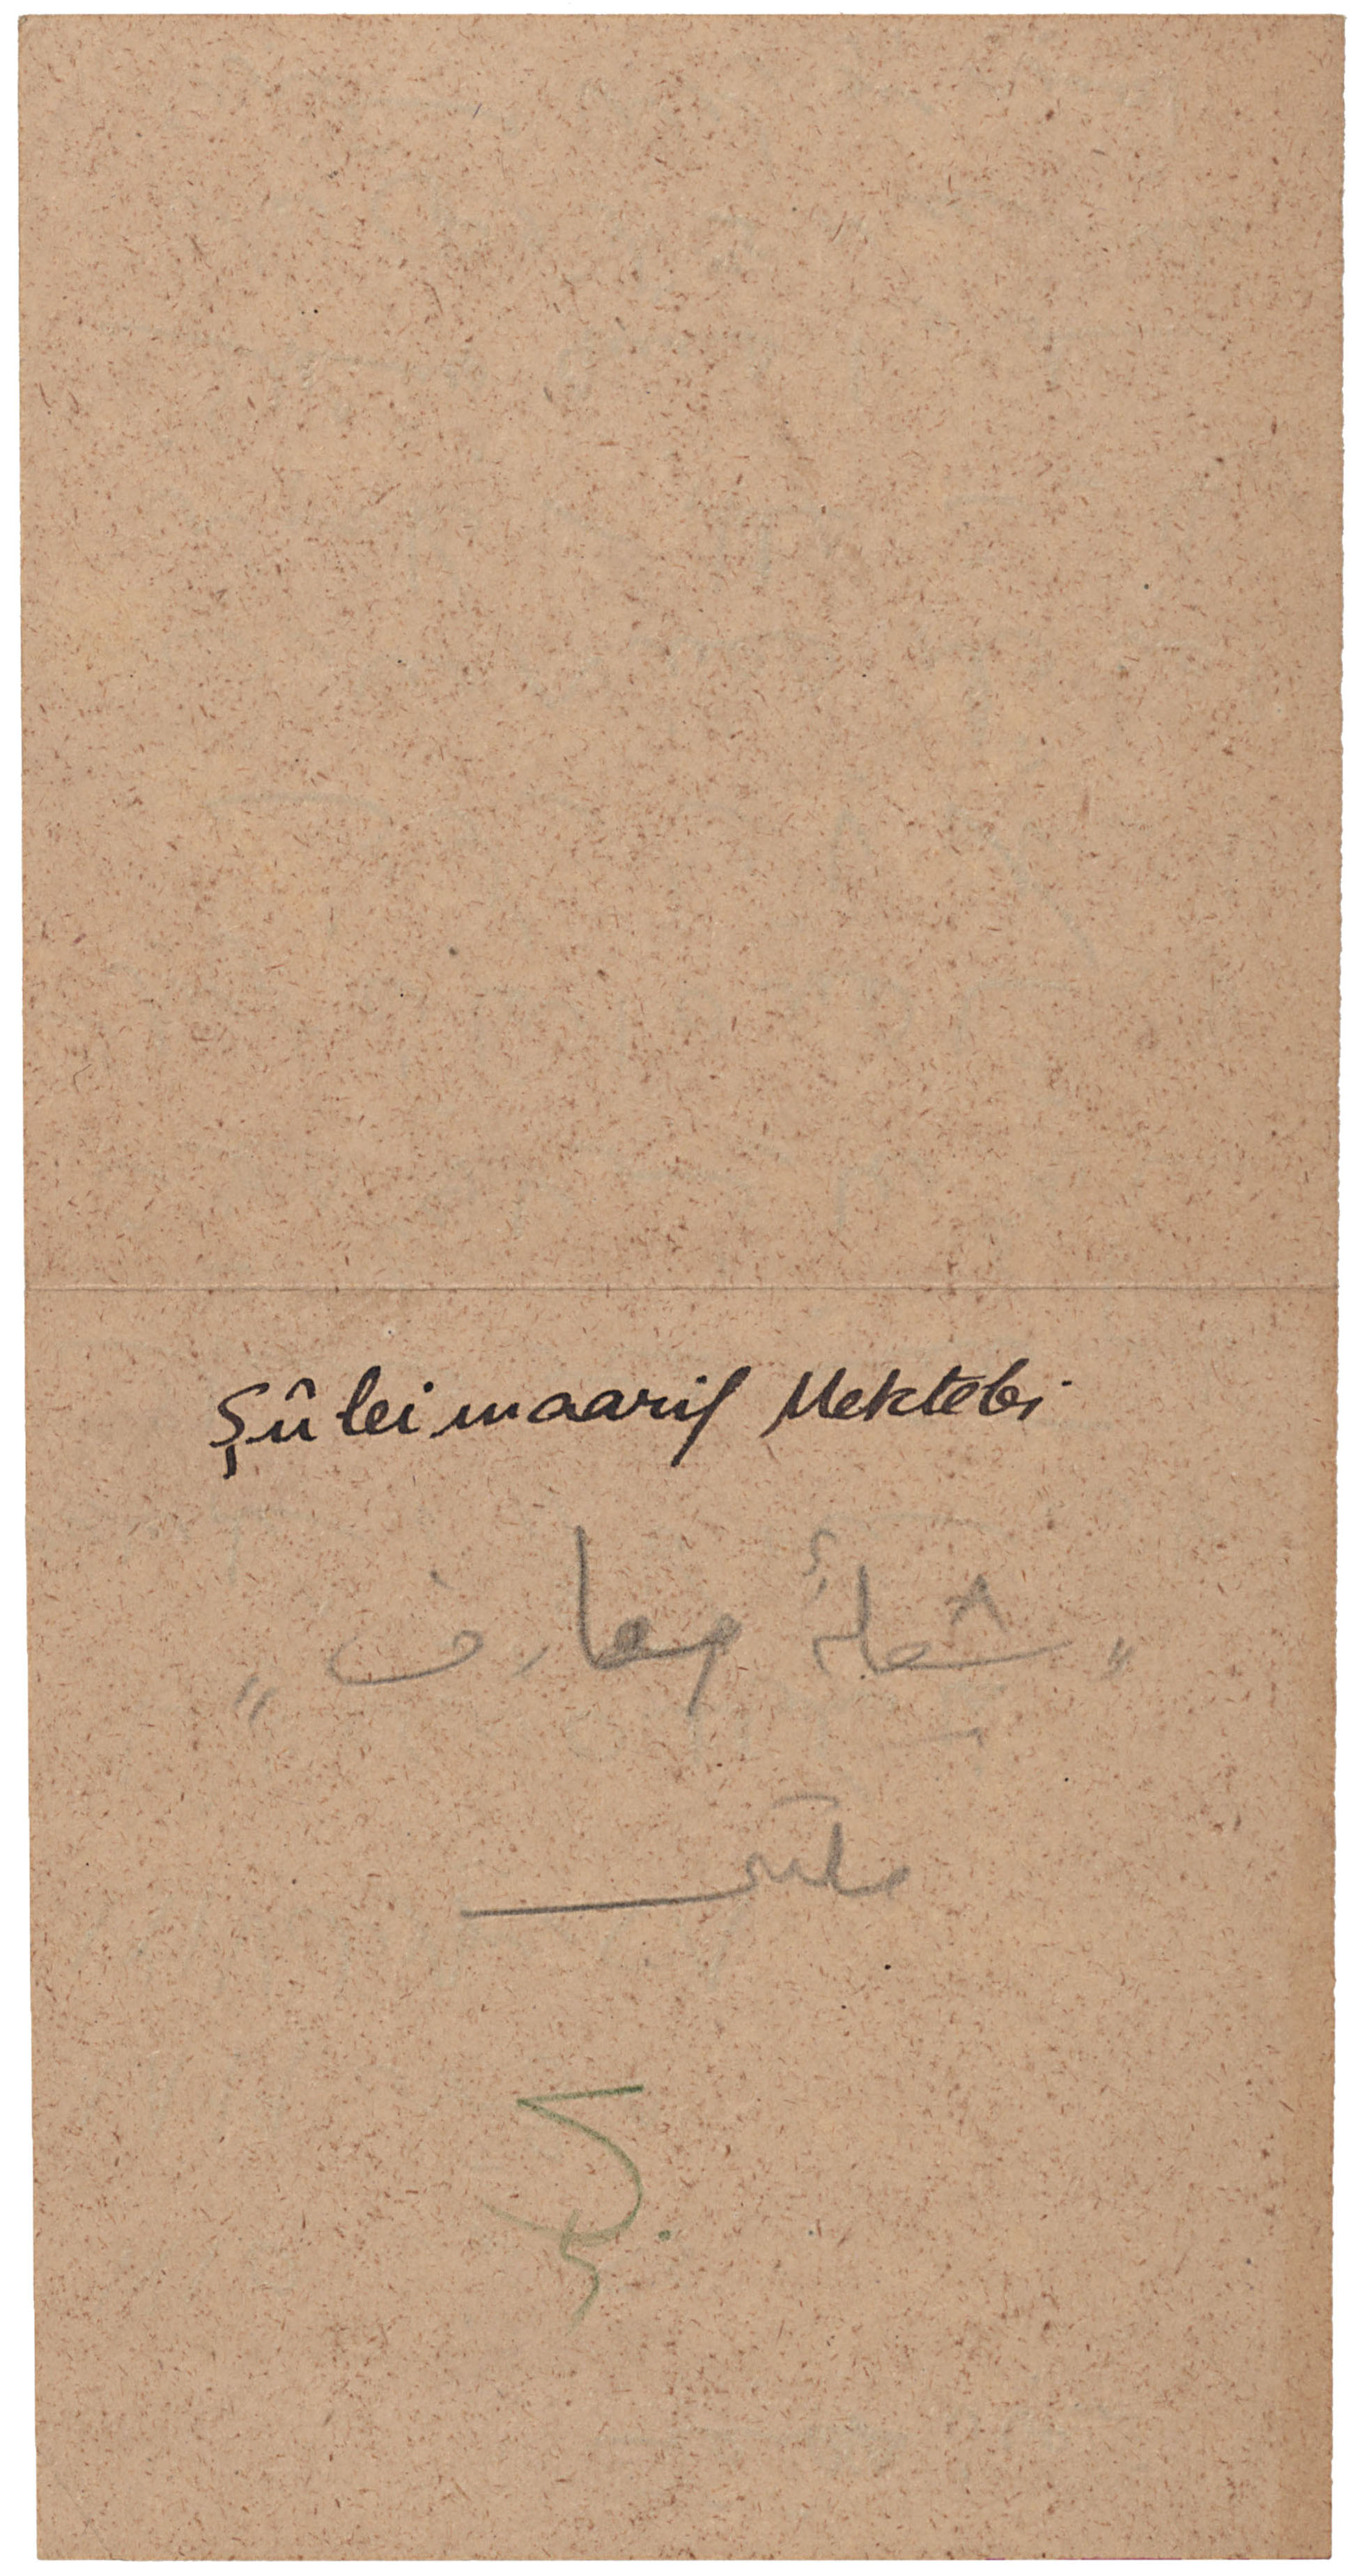 Şûlei maarif Mektebi
„ شعلهٔ معارف „
مكتبى